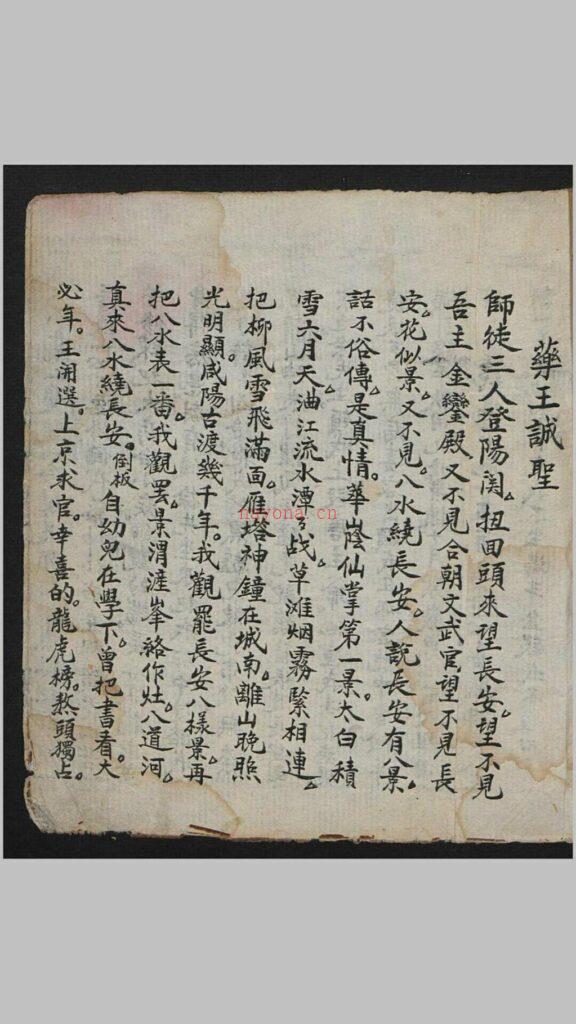 藥王誠聖
師徒三人登陽関。扭回頭來望長安。望不見
吾主金鑾殿又不見合朝文武官望不見長
安。花似景。又不見。八水繞長安。人說長安有八景。
話不俗傳。是真情。華蔭仙掌第一景。太白積
雪六月天。油江流水潭々战。草滩烟霧緊相連。
把柳風雪飛滿面。雁塔神鐘在城南。離山晚照
光明顯。咸陽古渡幾千年。我觀罷長安八樣景。再
把八水表一番。我觀罢。景渭滻峯絡作灶。八道河。
真來八水繞長安。倒板自幼兒在學下。曾把書看。大
必年。王開選。上京求官。幸喜的。龍虎榜。熬頭獨占。
nayona.cn